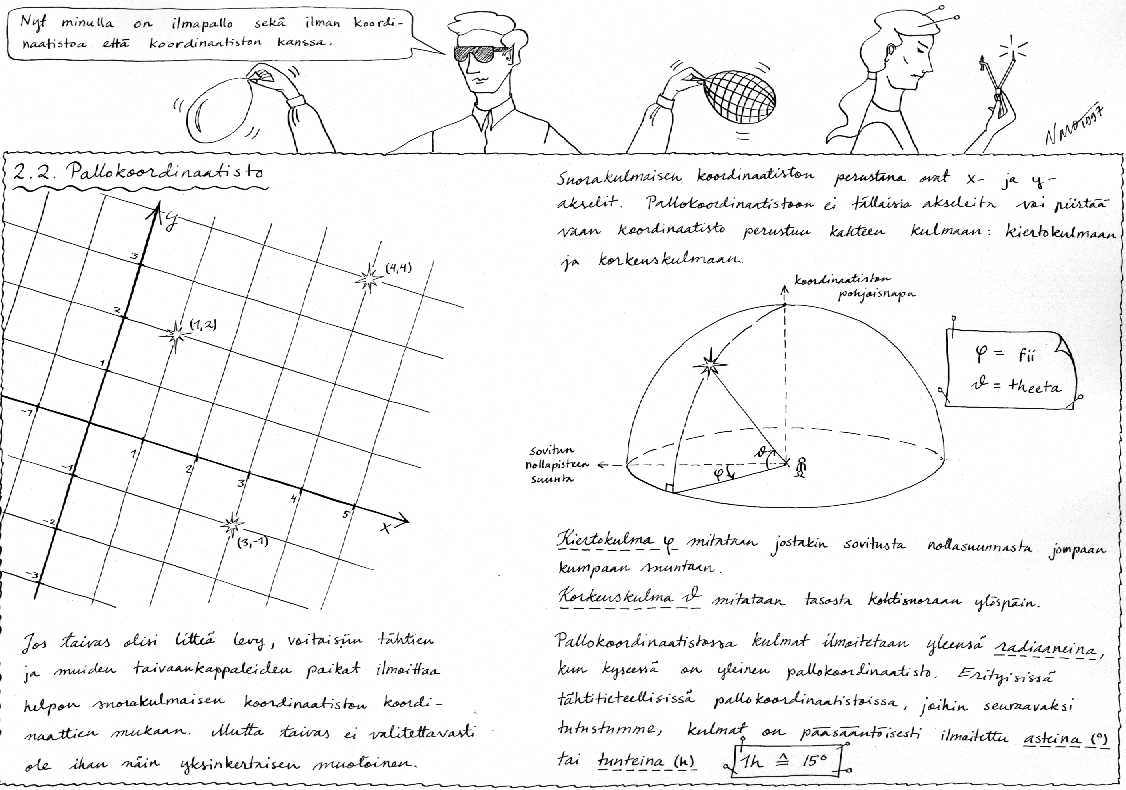 Nyt minulla on ilmapallo sekä ilman koordi-
naatistoa että koordinaatiston kanssa.
2.2. Pallokoordinaatisto
y
3
2
1
-1
-1
-2
-3
1
2
3
4
5
x
(4,4)
(1,2)
(3,-1)
Jos taivas olisi litteä levy, voitaisiin tähtien
ja muiden taivaankappaleiden paikat ilmoittaa
helpon suorakulmaisen koordinaatiston koordi-
naattien mukaan. Mutta taivas ei valitettavasti
ole ihan näin yksinkertaisen muotoinen.
Suorakulmaisen koordinaatiston perustana ovat x- ja y-
akselit. Pallokoordinaatistoon ei tällaisia akseleita voi piirtää
vaan koordinaatisto perustuu kahteen kulmaan: kiertokulmaan
ja korkeuskulmaan.
koordinaatiston
pohjoisnapa
φ = fii
ϑ = theeta
sovitun
nollapisteen
suunta
φ
ϑ
Kiertokulma φ mitataan jostakin sovitusta nollasuunnasta jompaan
kumpaan suuntaan.
Korkeuskulma ϑ mitataan tasosta kohtisuoraan ylöspäin.
Pallokoordinaatistossa kulmat ilmoitetaan yleensä radiaaneina,
kun kyseessä on yleinen pallokoordinaatisto. Erityisissä
tähtitieteellisissä pallokoordinaatistoissa, joihin seuraavaksi
tutustumme, kulmat on pääsääntöisesti ilmoitettu asteina (°)
tai tunteina (h) 1h ≙ 15°